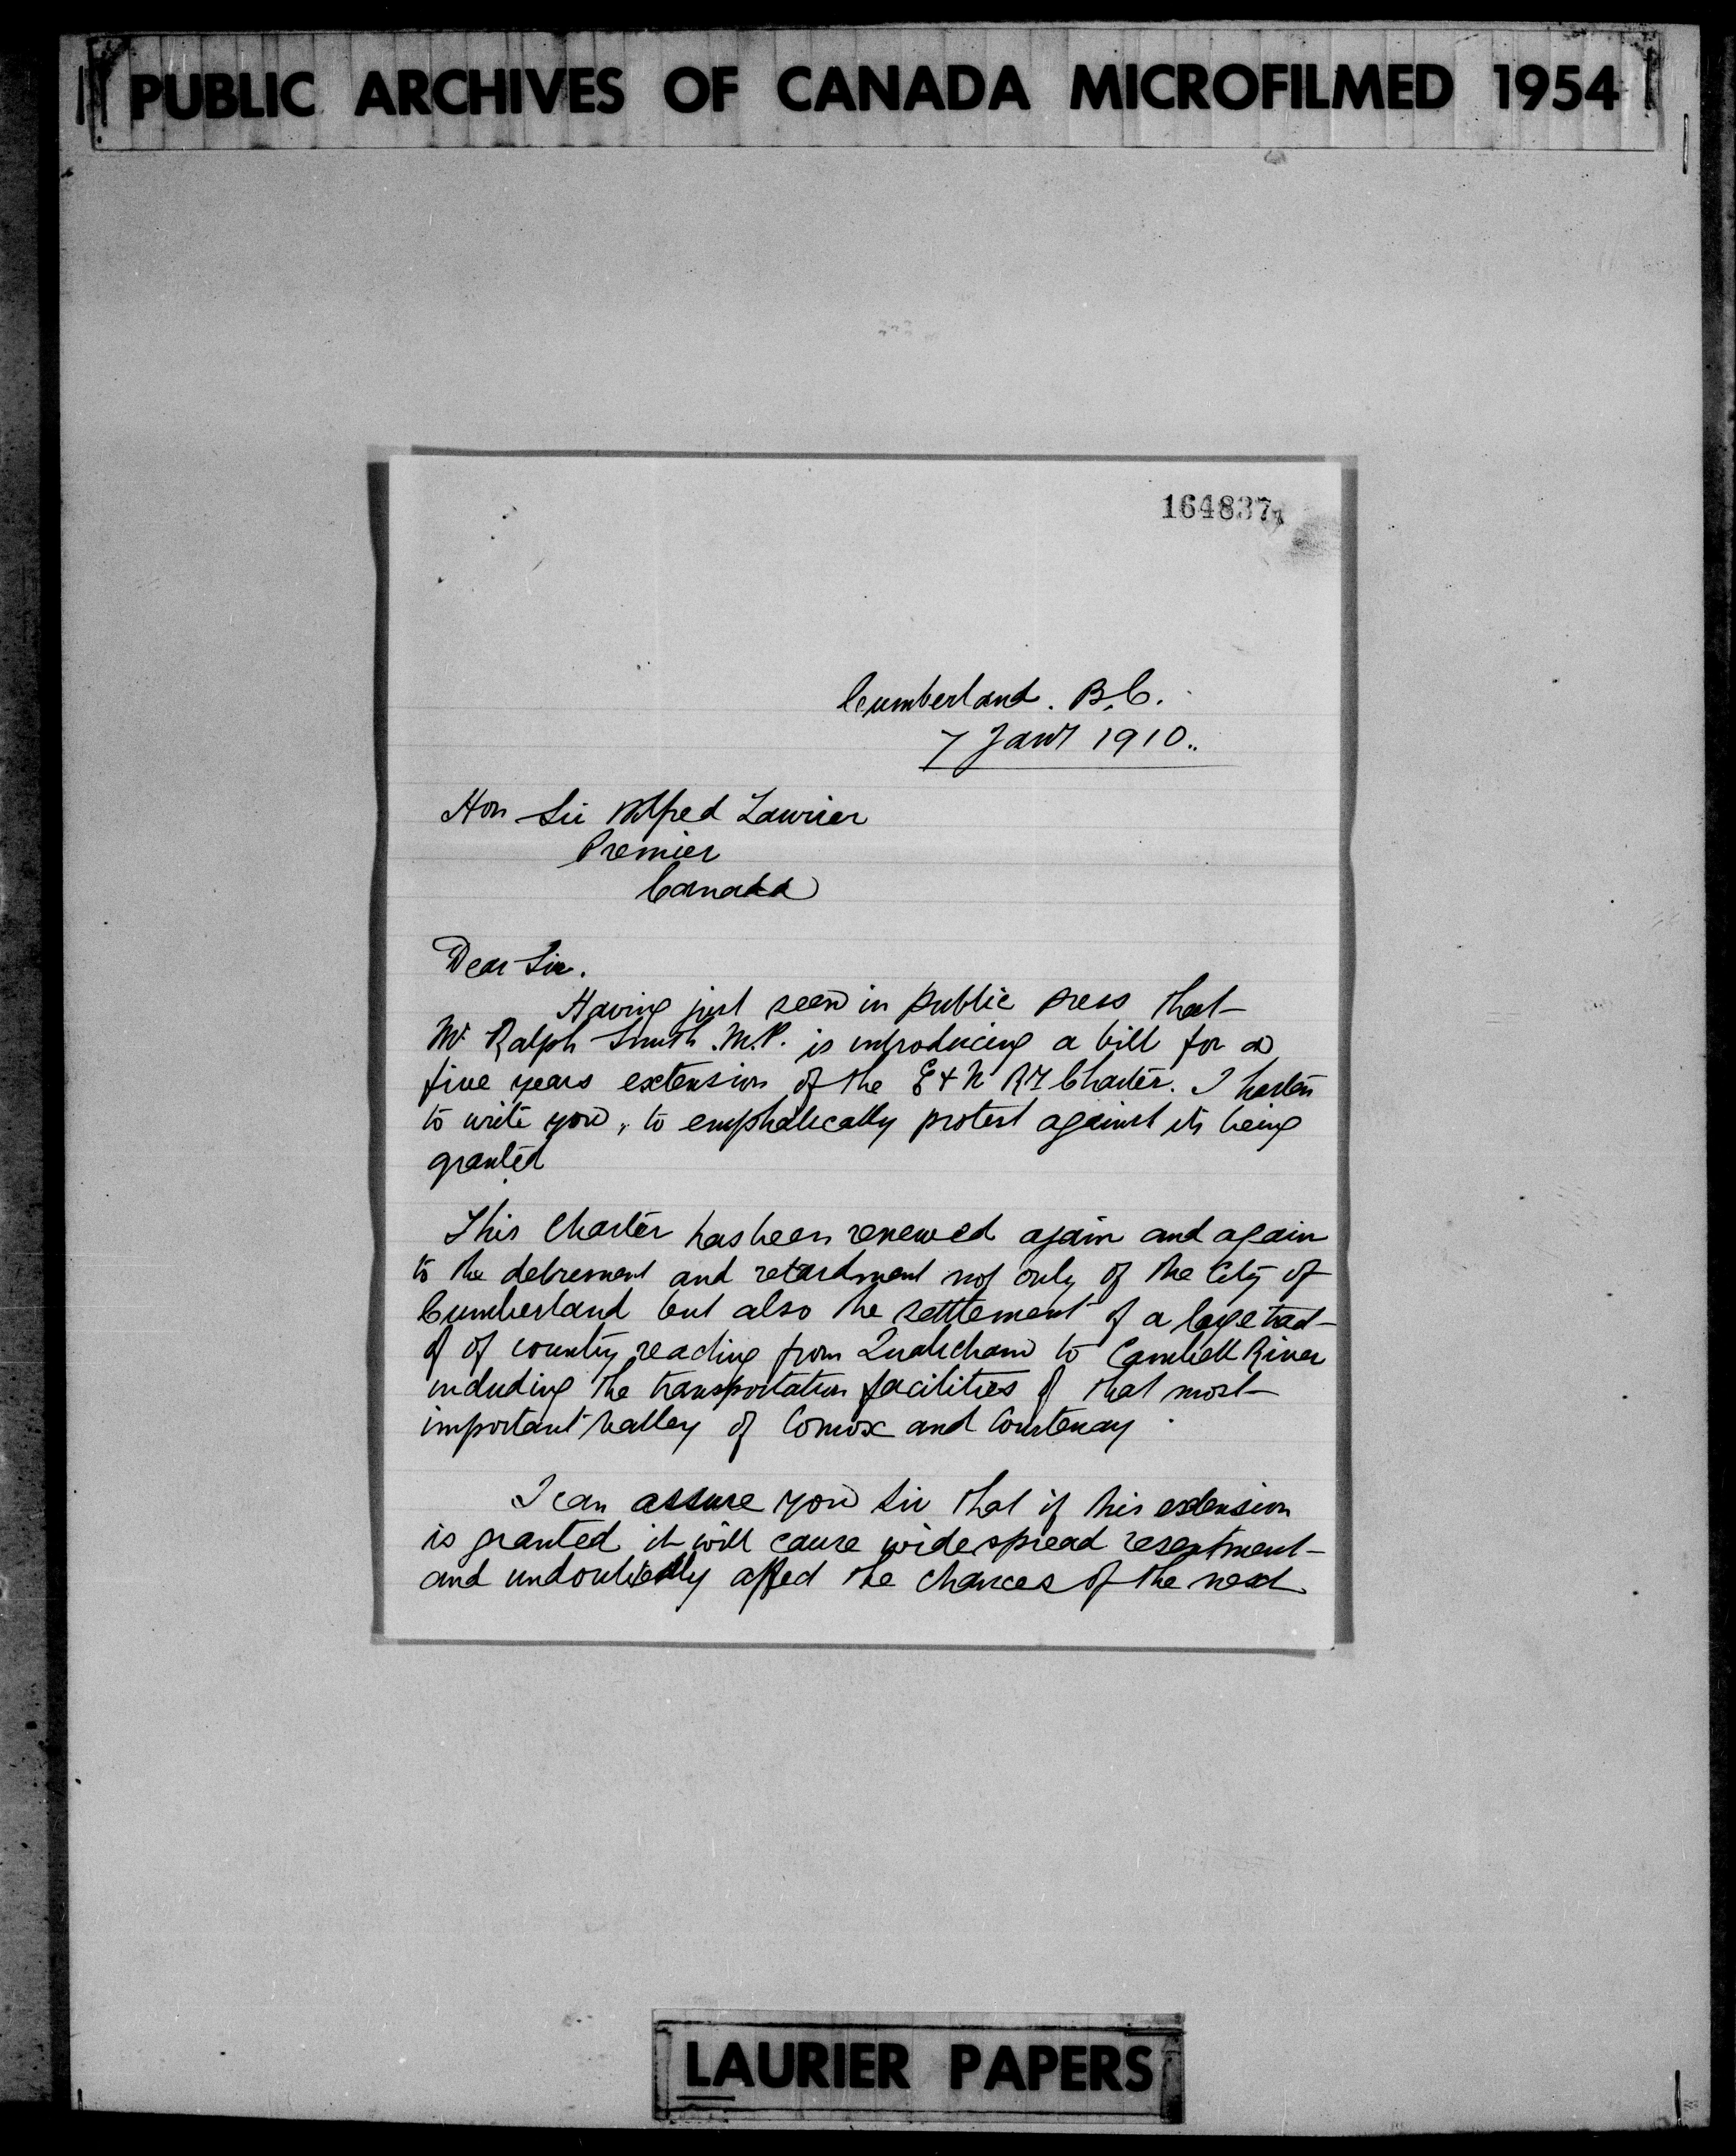 PUBLIC ARCHIVES OF CANADA MICROFILMED 1954
164837
Cumberland. B.C.
7 Jany 1910..
Hon Sir Wilfred Laurier
Premier
Canada
Dear Sir.
Having just seen in public press that
Mr Ralph Smith. M.P. is introducing a bill for a
five years extension of the E & N Ry Charter. I hasten
to write you, to emphatically protest against its being
granted
This Charter has been renewed again and again
to the detrement and retardment not only of the City of
Cumberland but also the settlement of a large tract
of of country reaching from to Cambell River
including the transportation facilities of that most
important valley of Comox and Courtenay
I can assure you Sir that if this extension
is granted it will cause widespread resentment
and undoubtedly affect the chances of the next
LAURIER PAPERS